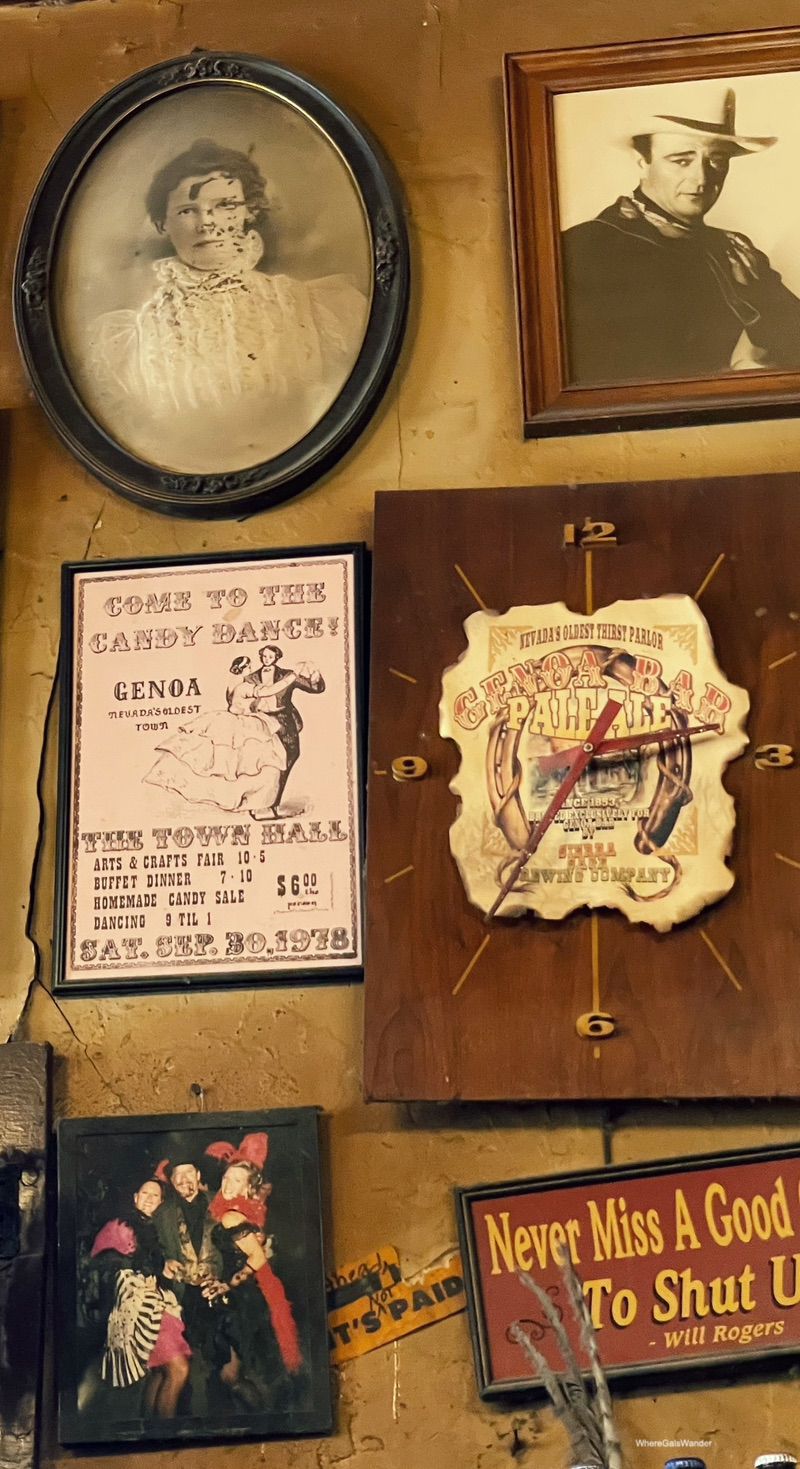 COME TO THE
CANDY DANCE!
GENOA
NEVADA'S OLDEST
TOWN
THE TOWN HALL
ARTS & CRAFTS FAIR 10-5
BUFFET DINNER 7-10
HOMEMADE CANDY SALE
DANCING 9 TIL 1
$6.00
SAT. SEP. 30, 1978
12
3
6
9
NEVADA'S OLDEST THIRST PARLOR
GENOA BAR
PALE ALE
SINCE 1853
EXCLUSIVELY FOR
GENOA BAR
BY
SIERRA
BREWING COMPANY
ahead
Not
IT'S PAID
Never Miss A Good
To Shut U
- Will Rogers
WhereGalsWander